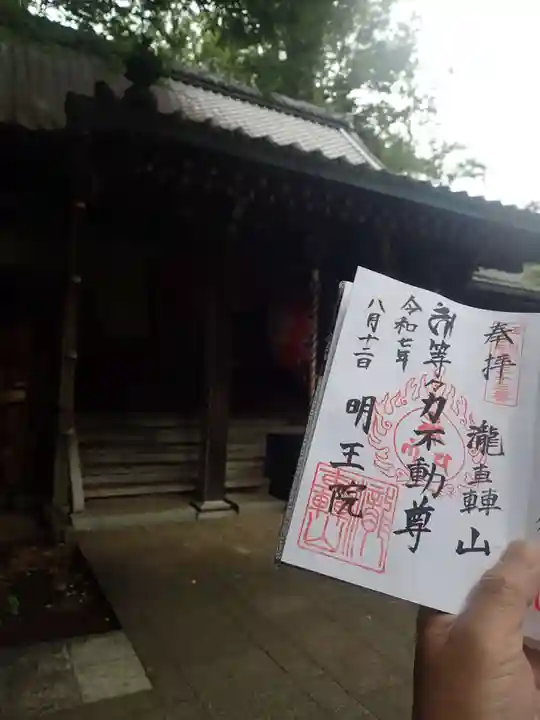 奉拝
瀧轟山
等々力不動尊
明王院
令和七年
八月十二日